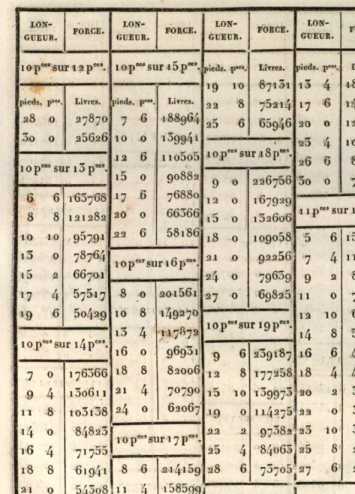 LON-
GUEUR. FORCE.
10 p.ces sur 12 p.ces.
pieds. p.ces. Livres.
28 0 27870
30 0 25626
10 p.ces sur 13 p.ces.
6 6 163768
8 8 121282
10 10 95791
13 0 78764
15 2 66701
17 4 57517
19 6 50429
10 p.ces sur 14 p.ces.
7 0 176366
9 4 130611
11 8 103138
14 0 84823
16 4 71755
18 8 61941
21 0 54308
LON-
GUEUR. FORCE.
10 p.ces sur 15 p.ces.
pieds. p.ces. Livres.
7 6 188964
10 0 139941
12 6 110505
15 0 90882
17 6 76880
20 0 66366
22 6 58186
10 p.ces sur 16 p.ces.
8 0 201561
10 8 149270
13 4 117872
16 0 96931
18 8 82006
21 4 70790
24 0 62067
10 p.ces sur 17 p.ces.
8 6 214159
11 4 158599
LON-
GUEUR. FORCE.
pieds. p.ces. Livres.
19 10 87131
22 8 75214
25 6 65946
10 p.ces sur 18 p.ces.
9 0 226756
12 0 167929
15 0 132606
18 0 109058
21 0 92256
24 0 79639
27 0 69825
10 p.ces sur 19 p.ces.
9 6 239187
12 8 177258
15 10 139973
19 0 114275
22 2 97382
25 4 84063
28 6 73705
LON-
GUEUR.
pieds. p.ces.
13 4
17 6
20 0
23 4
26 6
30 0
11 p.ces
5 6
7 4
9 2
11 0
12 10
14 8
16 6
18 4
20 2
22 0
23 10
25 8
27 6